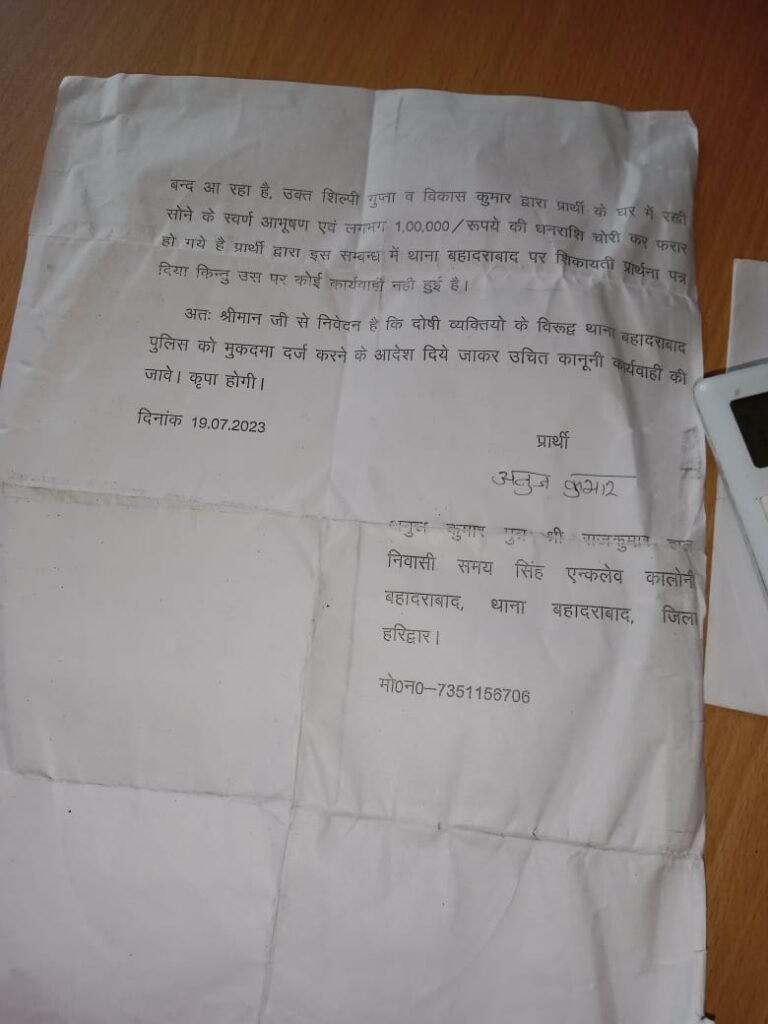 बन्द आ रहा है, उक्त शिल्पी गुप्ता व विकास कुमार द्वारा प्रार्थी के घर में रखी
सोने के स्वर्ण आभूषण एवं लगभग 1,00,000/रूपये की धनराशि चोरी कर फरार
हो गये है प्रार्थी द्वारा इस सम्बन्ध में थाना बहादराबाद पर शिकायती प्रार्थना पत्र
दिया किन्तु उस पर कोई कार्यवाही नही हुई है।
अतः श्रीमान जी से निवेदन है कि दोषी व्यक्तियो के विरूद्व थाना बहादराबाद
पुलिस को मुकदमा दर्ज करने के आदेश दिये जाकर उचित कानूनी कार्यवाही की
जावे। कृपा होगी।
दिनांक 19.07.2023
प्रार्थी
अनुज कुमार
अनुज कुमार पुत्र श्री राजकुमार हाल
निवासी समय सिंह एन्कलेव कालोनी
बहादराबाद, थाना बहादराबाद, जिला
हरिद्वार।
मो0न0–7351156706